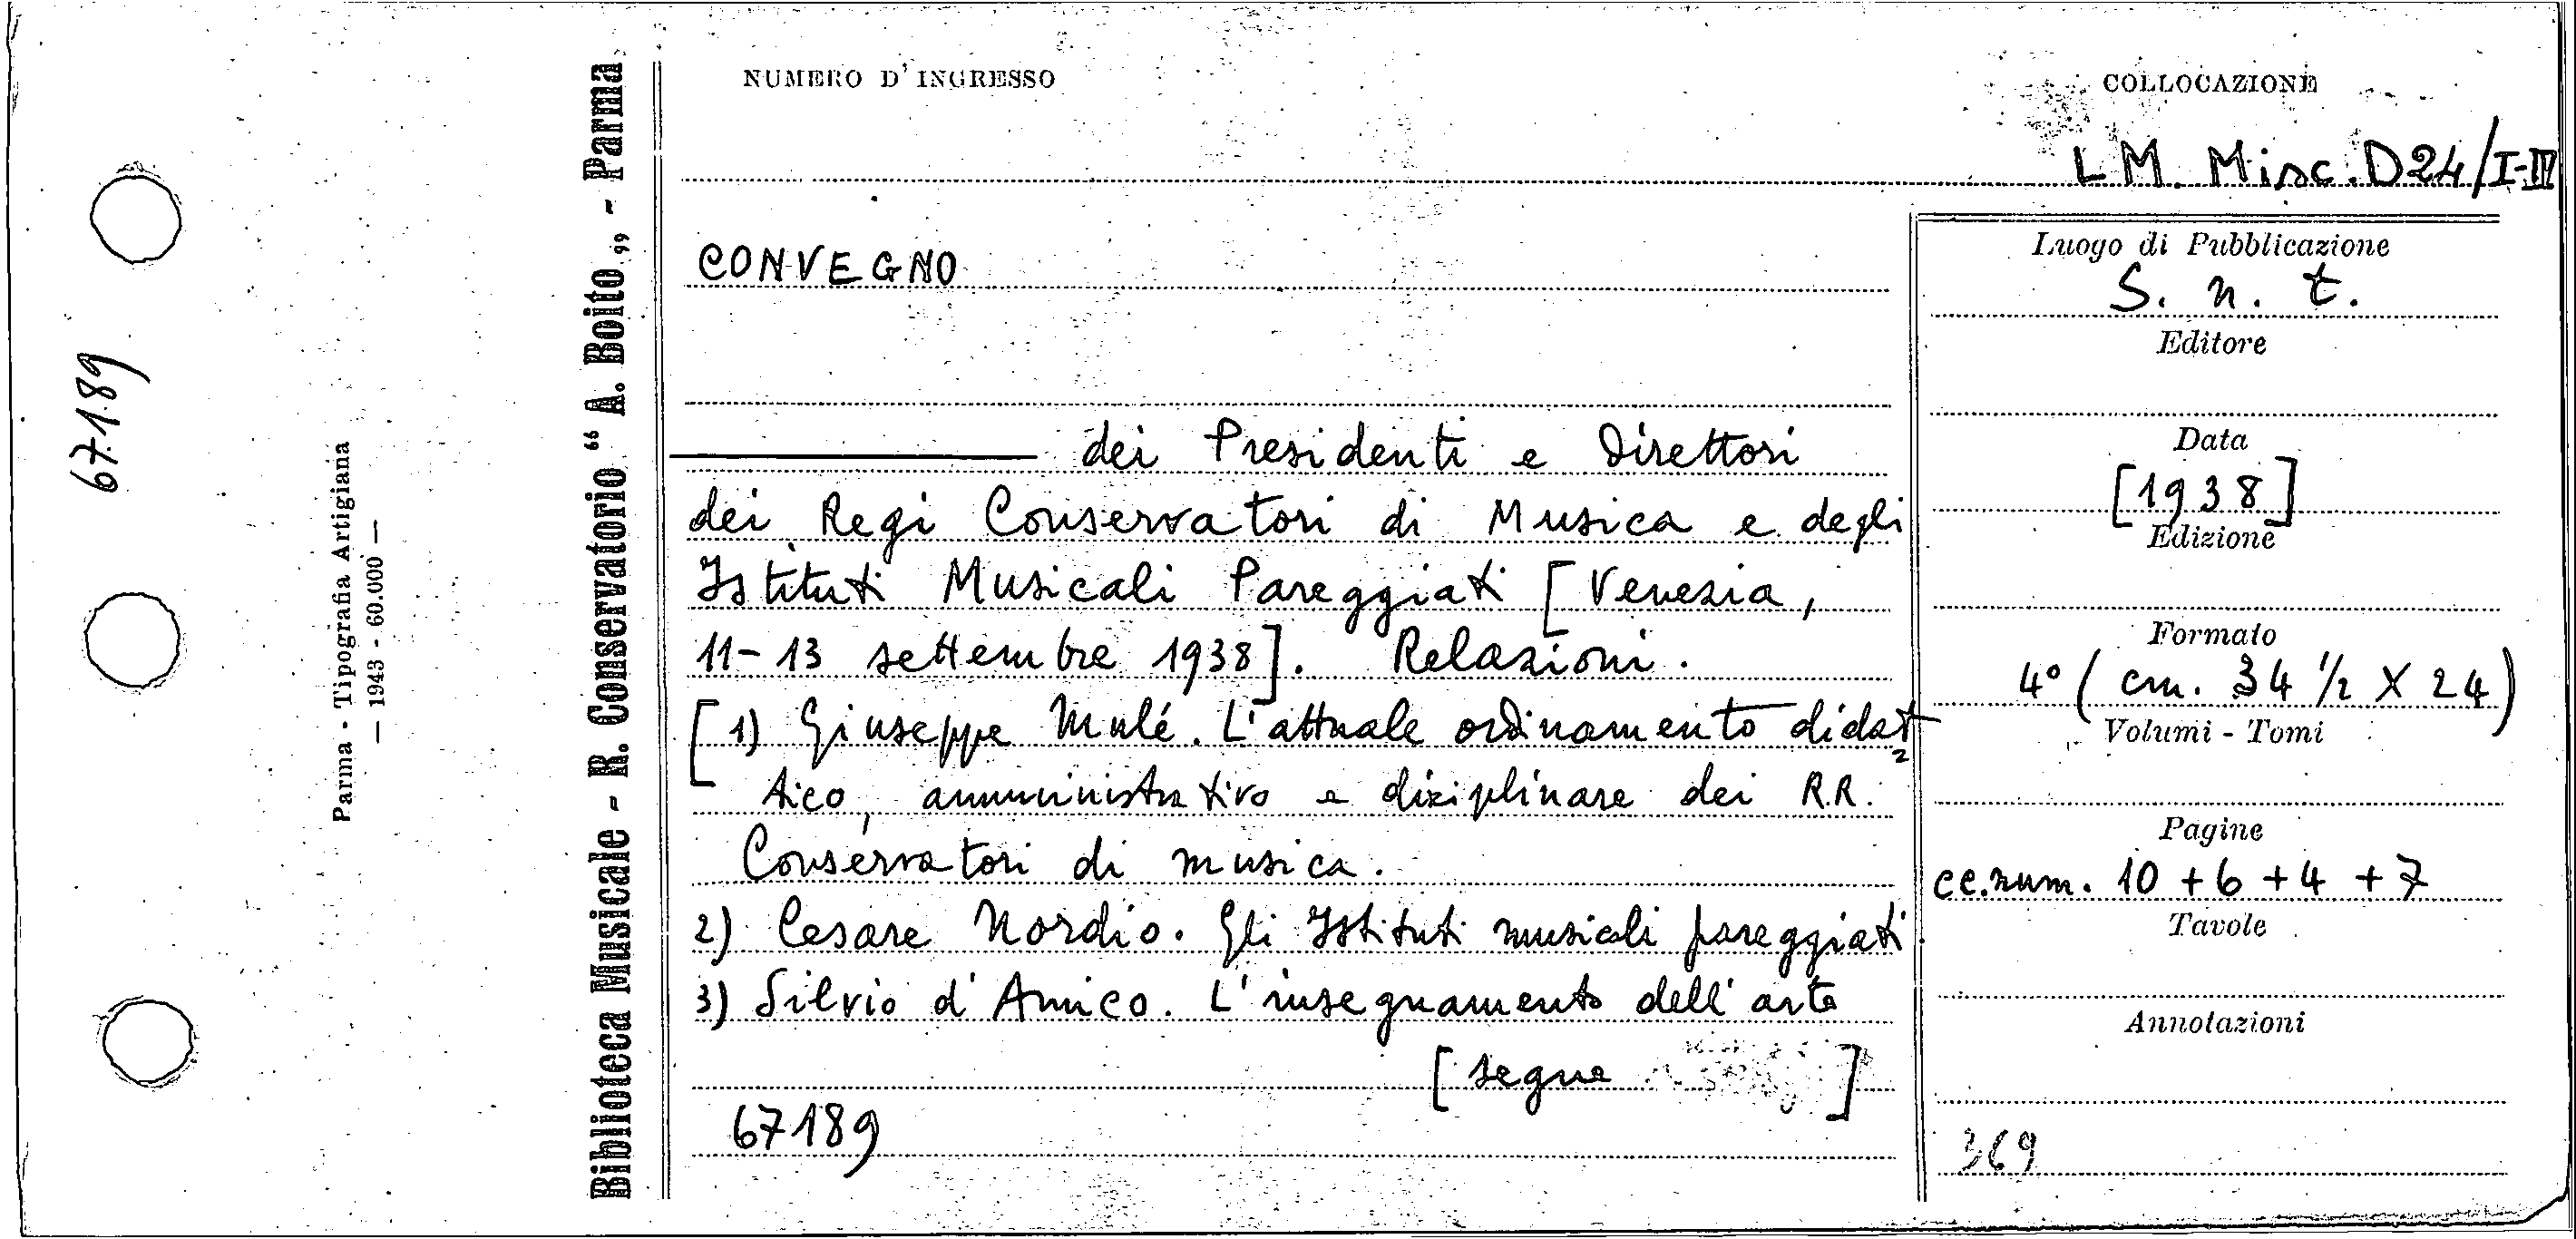 67189
Parma - Tipografia Artigiana
— 1943 - 60.000 —
Biblioteca Musicale - R. Conservatorio “ A. Boito „ - Parma
NUMERO D'INGRESSO
COLLOCAZIONE
LM. Misc. D24/I-IV
CONVEGNO
——— dei Presidenti e Direttori
dei Regi Conservatori di Musica e degli
Istituti Musicali Pareggiati [Venezia,
11-13 settembre 1938]. Relazioni.
[1) Giuseppe Mulé. L'attuale ordinamento didat
tico, amministrativo e disciplinare dei R.R.
Conservatori di musica.
2) Cesare Nordio. Gli Istituti musicali pareggiati
3) Silvio d'Amico. L'insegnamento dell'arte
[segue ]
67189
Luogo di Pubblicazione
S. n. t.
Editore
Data
[1938]
Edizione
Formato
4° (cm. 34 1/2 X 24)
Volumi - Tomi
Pagine
cc.num. 10 + 6 + 4 + 7
Tavole
Annotazioni
369